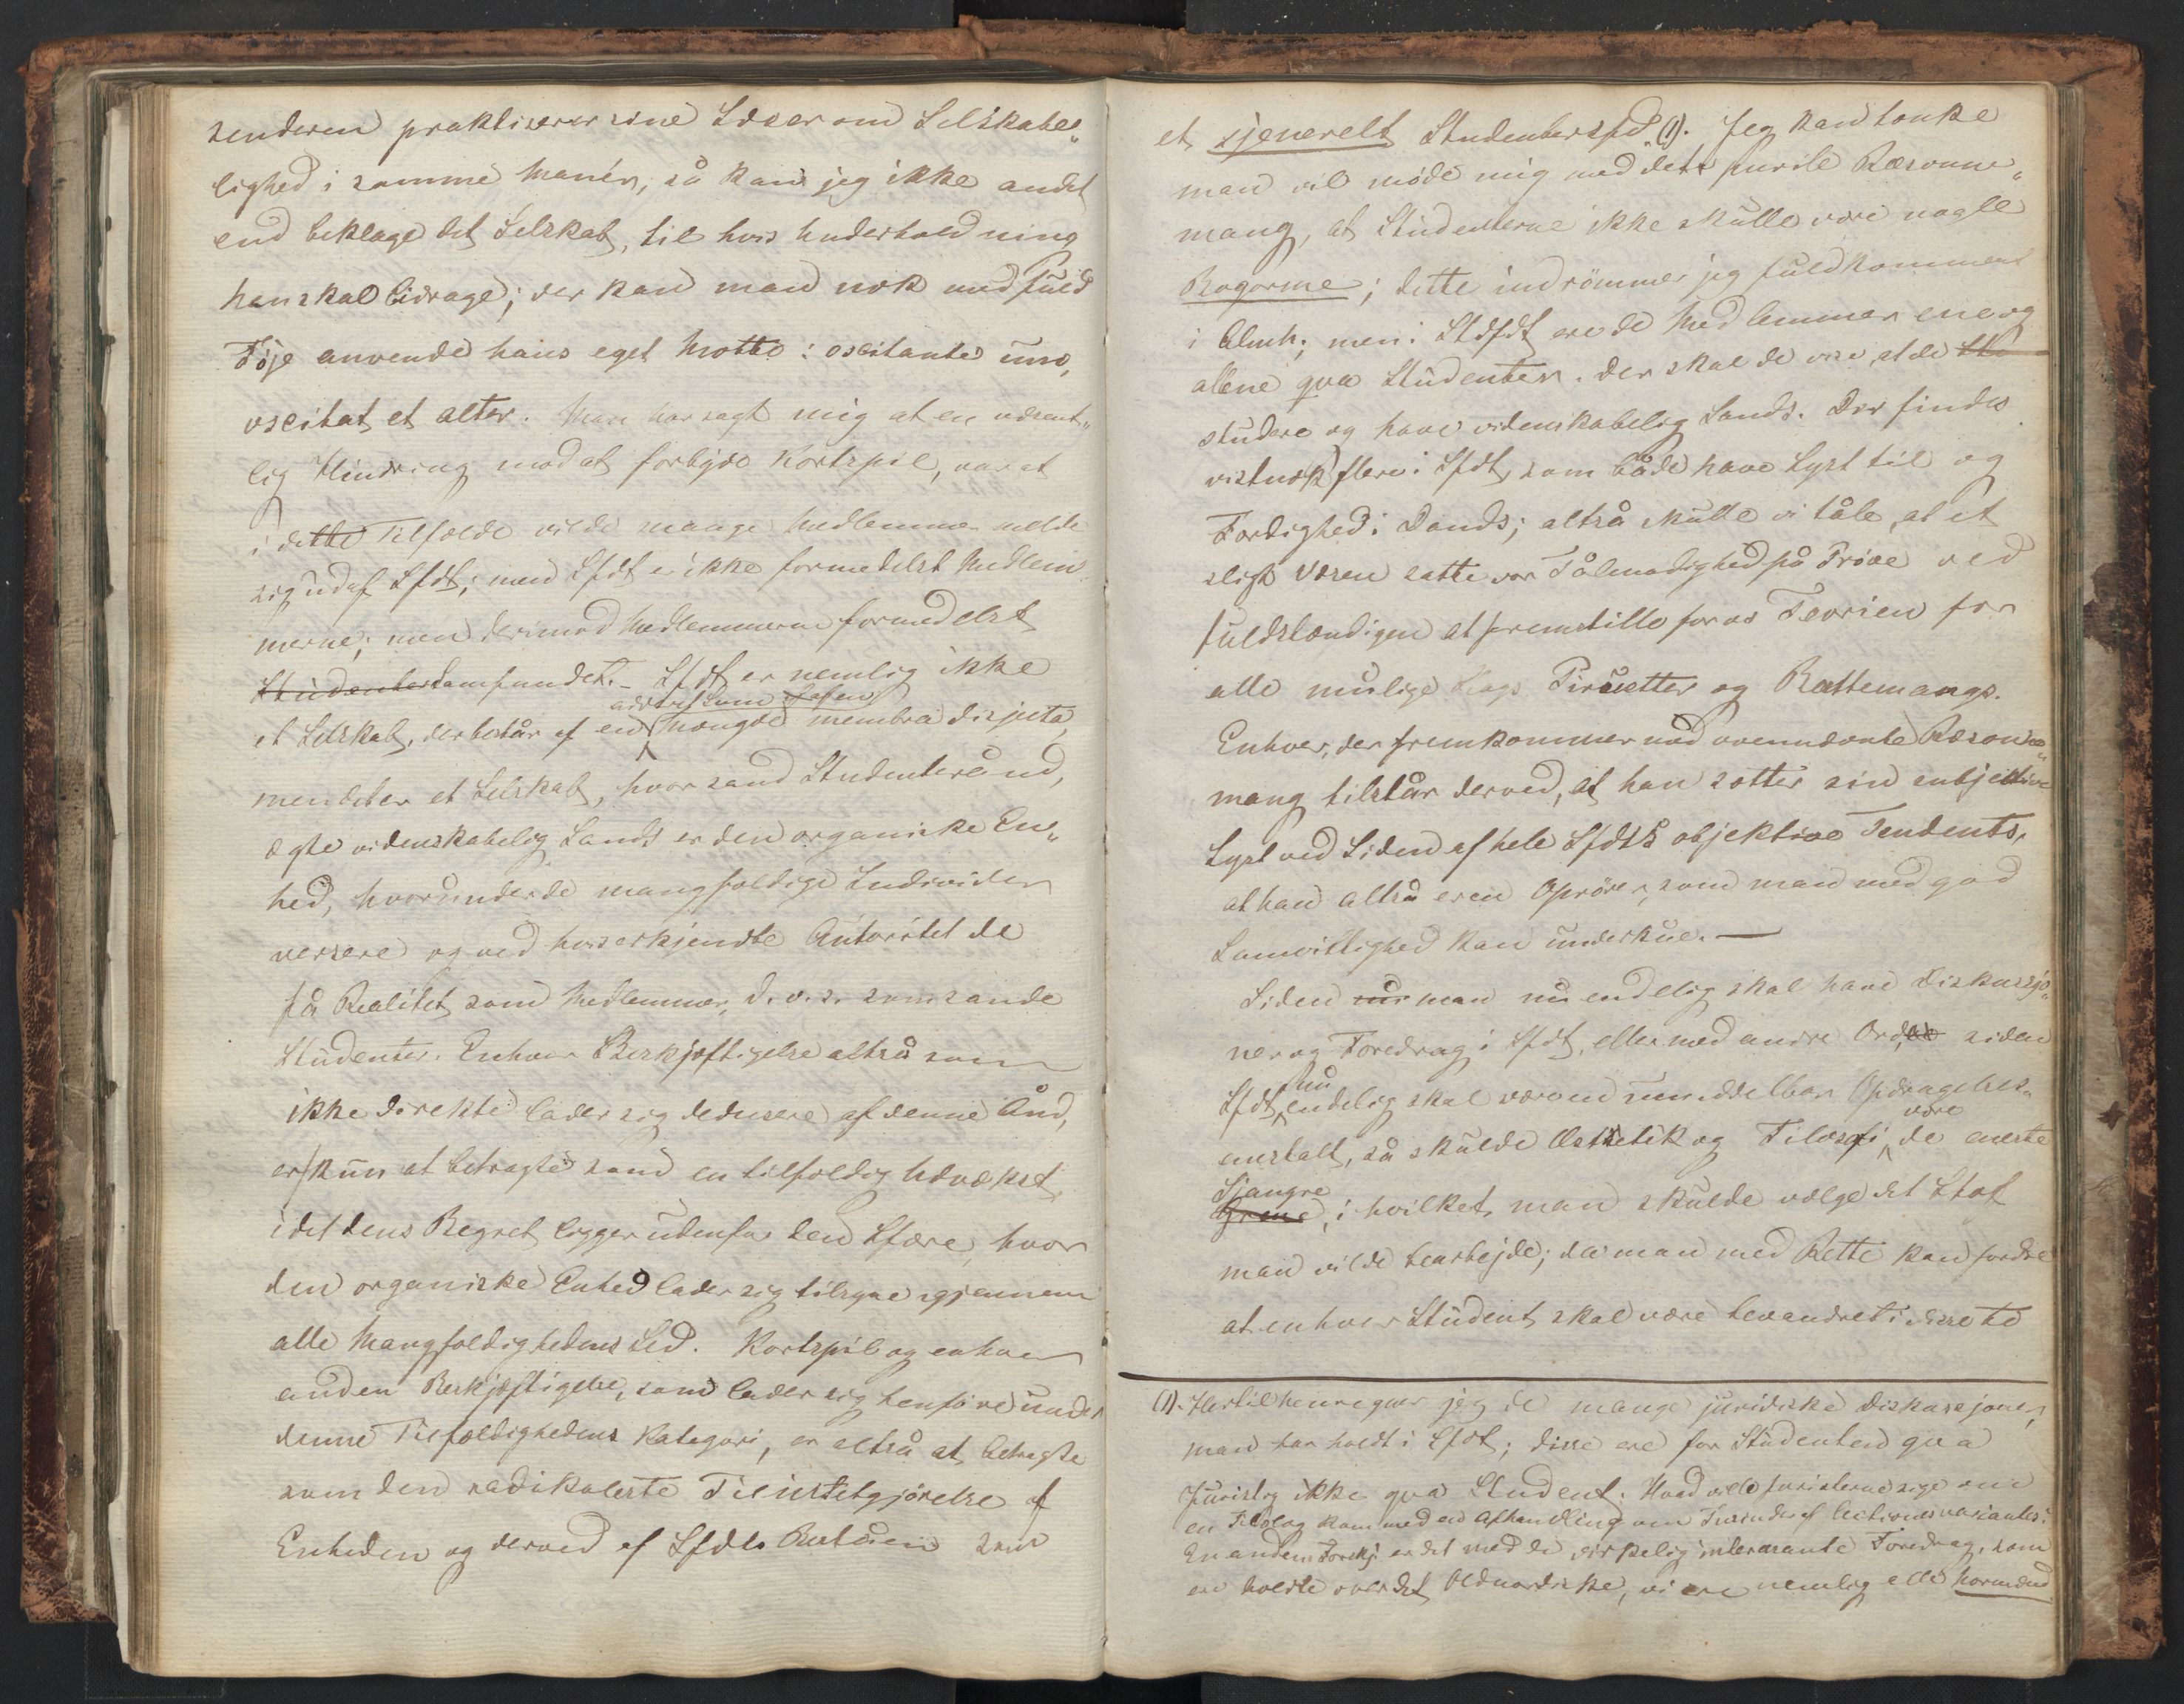 senderen praktiserer sine Ideer om Selskabe„
lighed i samme Manér, så kan jeg ikke andet
end beklage det Selskab, til hvis Underholdning
han skal bidrage; der kan man nok med fuld
Föje anvende hans eget Motto: oscitante uno,
oscitat et alter. Man har sagt mig at en væsent„
lig Hindring mod at forbyde Kortspil, var at
i dette Tilfælde vilde mange Medlemmer melde
sig ud af Sfdt; men Sfdt er ikke formedelst Medlem„
merne; men derimod Medlemmerne formedelst
Studentersamfundet. – Sfdt er nemlig ikke
et Selskab, der består af en Mængde membra disjecta,
men det er et Selskab, hvor sand Studenterånd,
ægte videnskabelig Sands er den organiske En„
hed, hvorunder de mangfoldige Individer
versere og ved hvis erkjendte Autoritet de
få Realitet som Medlemmer, d. v. s. som sande
Studenter. Enhver Beskjæftigelse altså som
ikke direkte lader sig dedusere af denne Ånd,
er kun at betragte som en tilfældig Udvækst,
idet dens Begreb ligger udenfor den Sfære, hvor
den organiske Enhed lader sig tilsyne igjennem
alle Mangfoldighedens Led. Kortspil og enhver
anden Beskjæftigelse, som lader sig henföre under
denne Tilfældighedens Kategori, er altså at betragte
som den radikaleste Tilintetgjörelse af
Enheden og derved af Sfdts Bestående som
et sjenerelt Studentersfd (1). Jeg kan tænke
man vil möde mig med dette purile Ræsonne„
mang, at Studenterne ikke skulle være nogle
Bogorme; dette indrömmer jeg fuldkommen
i Almh.; men i Stdfdt ere de Medlemmer ene og
alene qva Studenter. Der skal de vise, at de
studere og have videnskabelig Sands. Der findes
vistnok flere i Sfdt, som både have Lyst til og
Færdighed i Dands; altså skulle vi tåle, at et
sligt Væsen satte vor Tålmodighed på Pröve ved
fuldstændigen at fremstille for os Teorien for
alle mulige Slags Piruetter og Battemangs.
Enhver, der fremkommer med ovennævnte Ræsonne„
mang tilstår derved, at han sætter sin subjektive
Lyst ved Siden af hele Sfdts objektive Tendents,
at han altså er en Oprörer, som man med god
Samvittighed kan underkue. —
Siden man nu endelig skal have Diskussjo„
ner og Foredrag i Sfdt, eller med andre Ord, siden
Sfdt nu endelig skal være en umiddelbar Opdragelses„
anstalt, så skulde Æstetik og Filosofi være de eneste
Sjangre, i hvilket man skulde vælge det Stof
man vilde bearbejde; da man med Rette kan fordre
at enhver Student skal være bevandret i disse to
(1). Hertil henregner jeg de mange juridiske Diskussjoner,
man har holdt i Sfdt; disse ere for Studenten qva
Jurist og ikke qva Student. Hvad vilde Juristerne sige om
en Filolog kom med en Afhandling om lectiones variantes?
En anden Forskj. er det med de virkelig interessante Foredrag, som
ere holdte over det Oldnordiske, vi ere nemlig alle Normænd